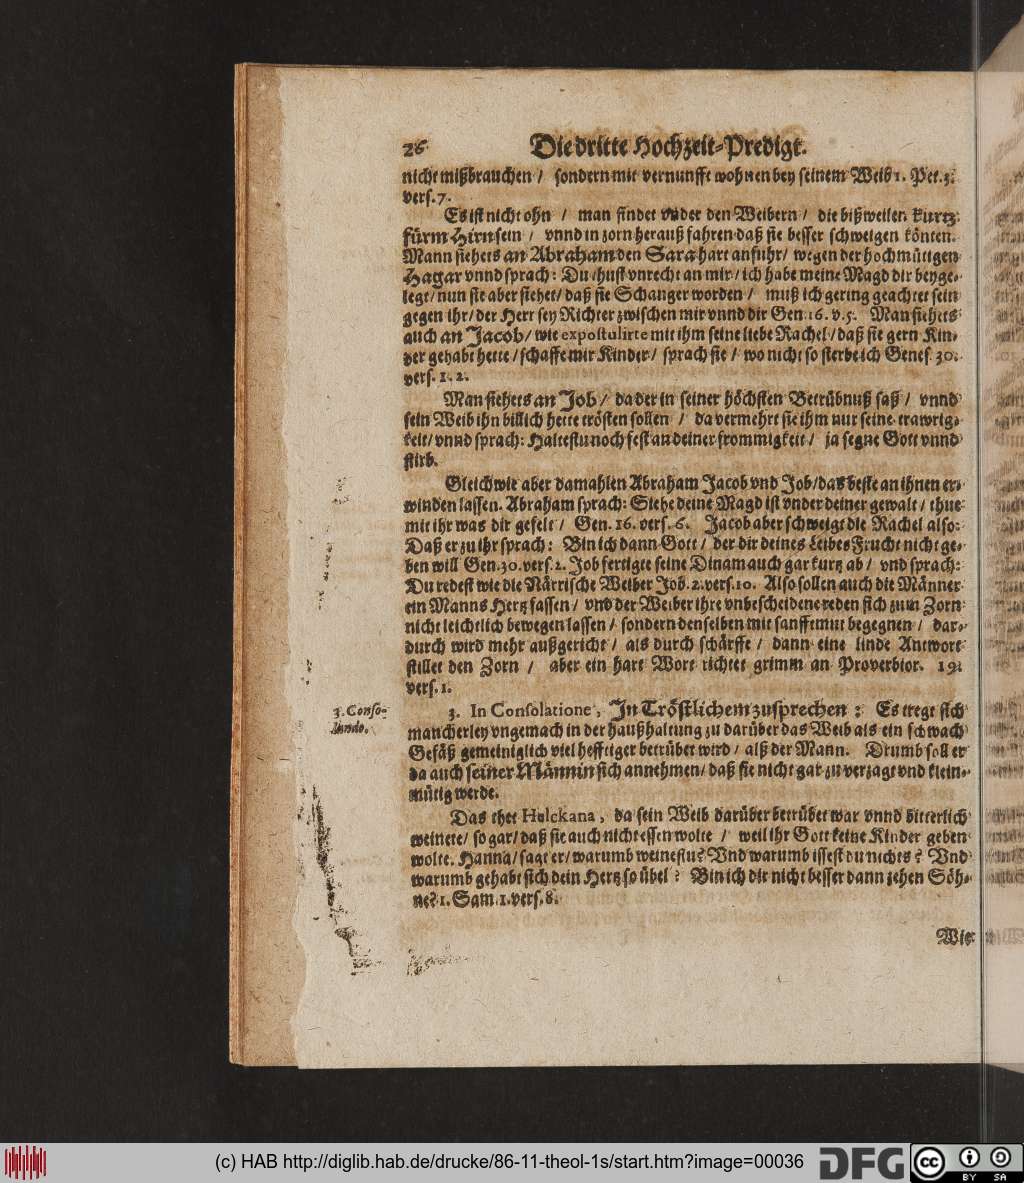 26 Die dritte Hochzeit-Predigt.
nicht mißbrauchen / sondern mit vernunfft wohnen bey seinem Weib 1. Pet. 3.
vers. 7.
Es ist nicht ohn / man findet vnder den Weibern / die bißweilen kurtz
fürm Hirn sein / vnnd in zorn herauß fahren daß sie besser schweigen könten.
Mann siehets an Abraham den Sara hart anfuhr / wegen der hochmütigen
Hagar vnnd sprach: Du thust vnrecht an mir / ich habe meine Magd dir beyge-
legt / nun sie aber siehet / daß sie Schanger worden / muß ich gering geachtet sein
gegen ihr / der Herr sey Richter zwischen mir vnnd dir Gen. 16. v. 5. Man siehets
auch an Jacob / wie expostulirte mit ihm seine liebe Rachel / daß sie gern Kin-
der gehabt hette / schaffe mir Kinder / sprach sie / wo nicht so sterbe ich Genes. 30.
vers. 1. 2.
Man siehets an Job / da der in seiner höchsten Betrübnuß saß / vnnd
sein Weib ihn billich hette trösten sollen / da vermehrt sie ihm nur seine trawrig-
keit / vnnd sprach: Haltestu noch fest an deiner frommigkeit / ja segne Gott vnnd
stirb.
Gleich wie aber damahlen Abraham Jacob vnd Job / das beste an ihnen er-
winden lassen. Abraham sprach: Siehe deine Magd ist vnder deiner gewalt / thue
mit ihr was dir gefelt / Gen. 16. vers. 6. Jacob aber schweigt die Rachel also:
Daß er zu ihr sprach: Bin ich dann Gott / der dir deines Leibes Frucht nicht ge-
ben will Gen. 30. vers. 2. Job fertigte seine Dinam auch gar kurtz ab / vnd sprach:
Du redest wie die Närrische Weiber Job. 2. vers. 10. Also sollen auch die Männer
ein Manns Hertz fassen / vnd der Weiber ihre vnbescheidene reden sich zum Zorn
nicht leichtlich bewegen lassen / sondern denselben mit sanfftmut begegnen / dar-
durch wird mehr außgericht / als durch schärffe / dann eine linde Antwort
stillet den Zorn / aber ein hart Wort richtet grimm an Proverbior. 19.
vers. 1.
3. Conso-
lando.
3. In Consolatione, In Tröstlichem zusprechen: Es tregt sich
mancherley vngemach in der haußhaltung zu darüber das Weib als ein schwach
Gefäß gemeiniglich viel hefftiger betrübet wird / alß der Mann. Drumb soll er
da auch seiner Männin sich annehmen / daß sie nicht gar zu verzagt vnd klein-
mütig werde.
Das thet Helckana, da sein Weib darüber betrübet war vnnd bitterlich
weinete / so gar / daß sie auch nicht essen wolte / weil ihr Gott keine Kinder geben
wolte. Hanna / sagt er / warumb weinestu? Vnd warumb issest du nichts? Vnd
warumb gehabt sich dein Hertz so übel? Bin ich dir nicht besser dann zehen Söh-
ne? 1. Sam. 1. vers. 8.
Wie
(c) HAB http://diglib.hab.de/drucke/86-11-theol-1s/start.htm?image=00036
DFG
CC BY SA